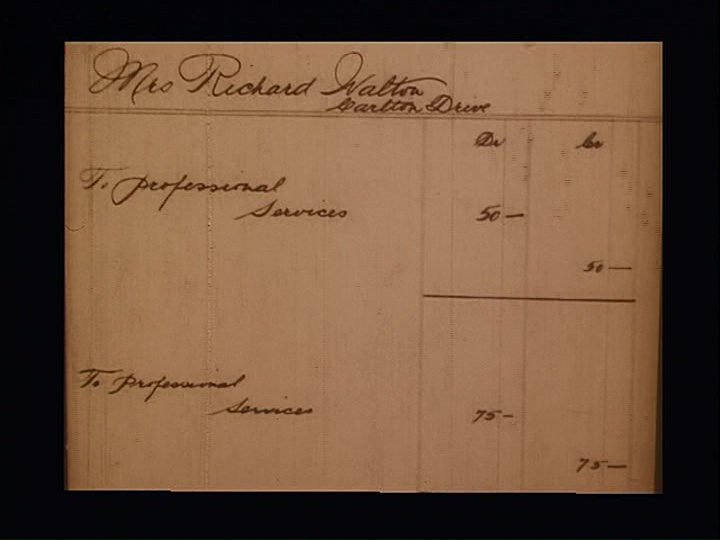 Mrs Richard Walton
Carlton Drive
Dr Cr
To professional
Services 50—
50—
To professional
Services 75-
75—